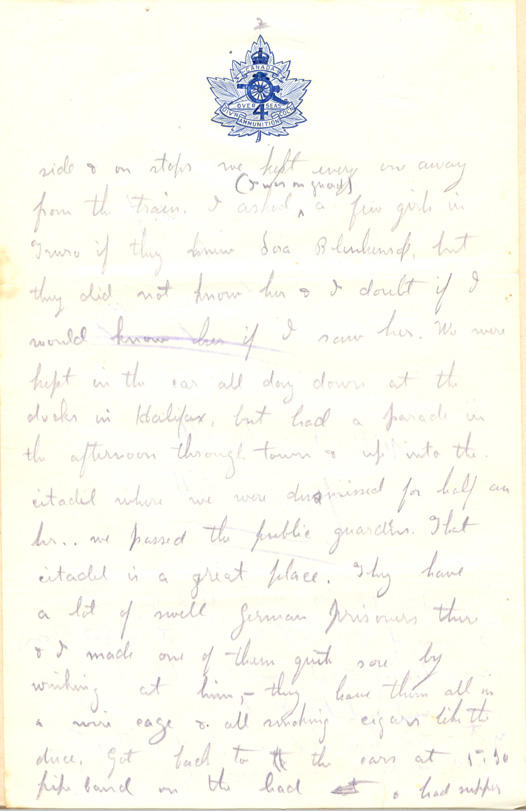 2
CANADA
OVER SEAS
4
DIV'N AMMUNITION COL
side & on stops we kept every one away
(I was on guard)
from the train. I asked ^ a few girls in
Truro if they knew Dora Blenkensop, but
they did not know her & I doubt if I
would know her if I saw her. We were
kept in the car all day down at the
docks in Halifax, but had a parade in
the afternoon through town & up into the
citadel where we were dismissed for half an
hr.. we passed the public guardens. That
citadel is a great place. They have
a lot of swell German Prisoners there
& I made one of them quite sore by
winking at him, - they have them all in
a wire cage & all smoking cigars like the
duce. Got back to the cars at 5.30
pipe band on the lead & had supper